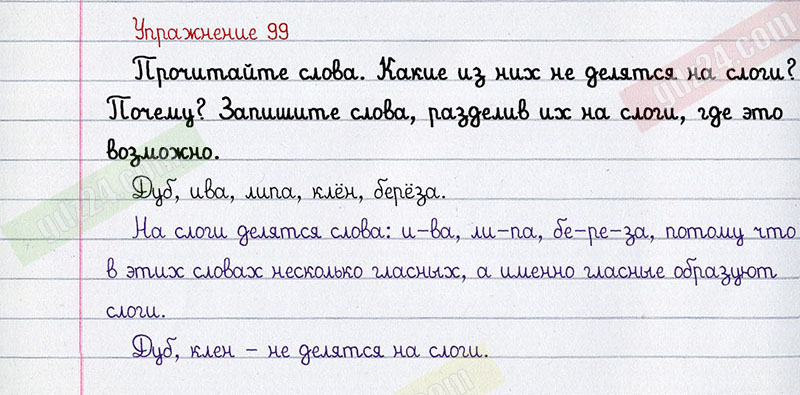 Упражнение 99
Прочитайте слова. Какие из них не делятся на слоги?
Почему? Запишите слова, разделив их на слоги, где это
возможно.
Дуб, ива, липа, клён, берёза.
На слоги делятся слова: и-ва, ли-па, бе-ре-за, потому что
в этих словах несколько гласных, а именно гласные образуют
слоги.
Дуб, клен - не делятся на слоги.
gdz24.com
gdz24.com
.com